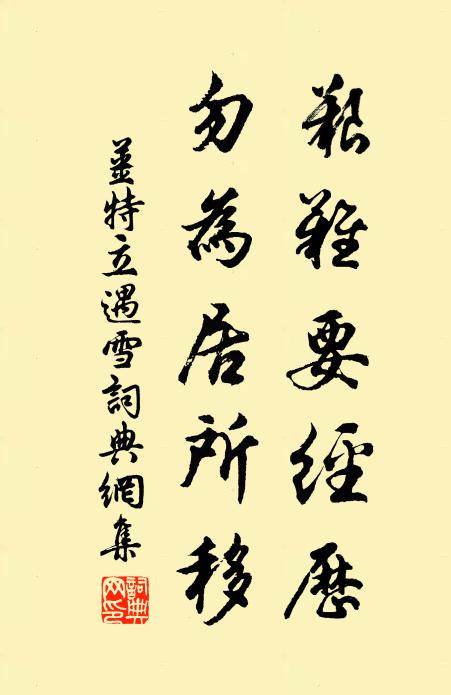 艱難要經歷
勿為居所移
姜特立遇雪詞典網集
詞典
网印